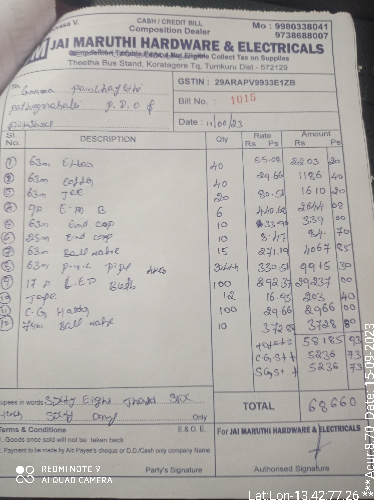 CASH / CREDIT BILL
Composition Dealer
Mo : 9980338041
9738688007
JAI MARUTHI HARDWARE & ELECTRICALS
Composition Taxable Person Not Eligible Collect Tax on Supplies
Theetha Bus Stand, Koratagere Tq, Tumkuru Dist - 572129
GSTIN : 29ARAPV9933E1ZB
Bill No. : 1015
Date :
Sl. No. DESCRIPTION Qty Rate Rs Ps Amount Rs Ps
1 63m 40 55.08 2203 20
2 63m 40 29.66 1186 40
3 63m TEE 20 80.51 1610 20
4 6 440.68 2644 08
5 63m End cap 10 33.90 339 00
6 25m End cap 10 8.47 84 70
7 63m Ball 15 271.19 4067 85
8 63m P.V.C Pipe 330.51 9915 30
9 LED Bulb 100 292.37 29237 00
10 Tape 12 16.95 203 40
11 C.G 100 29.66 2966 00
12 75m Ball 10 372.88 3728 80
Total= 58185 93
CGST 5236 73
SGST 5236 73
Rupees in words Sixty Eight
Sixty Only Only
TOTAL 68660
Terms & Conditions E.& O.E.
1. Goods once sold will not be taken back
2. Payment to be made by A/c Payee's cheque or D.D/Cash only company Name
For JAI MARUTHI HARDWARE & ELECTRICALS
Party's Signature
Authorised Signature
REDMI NOTE 9
AI QUAD CAMERA
Lat Lon-13.42:77.26
***Acur:8.70 Date:15-09-2023